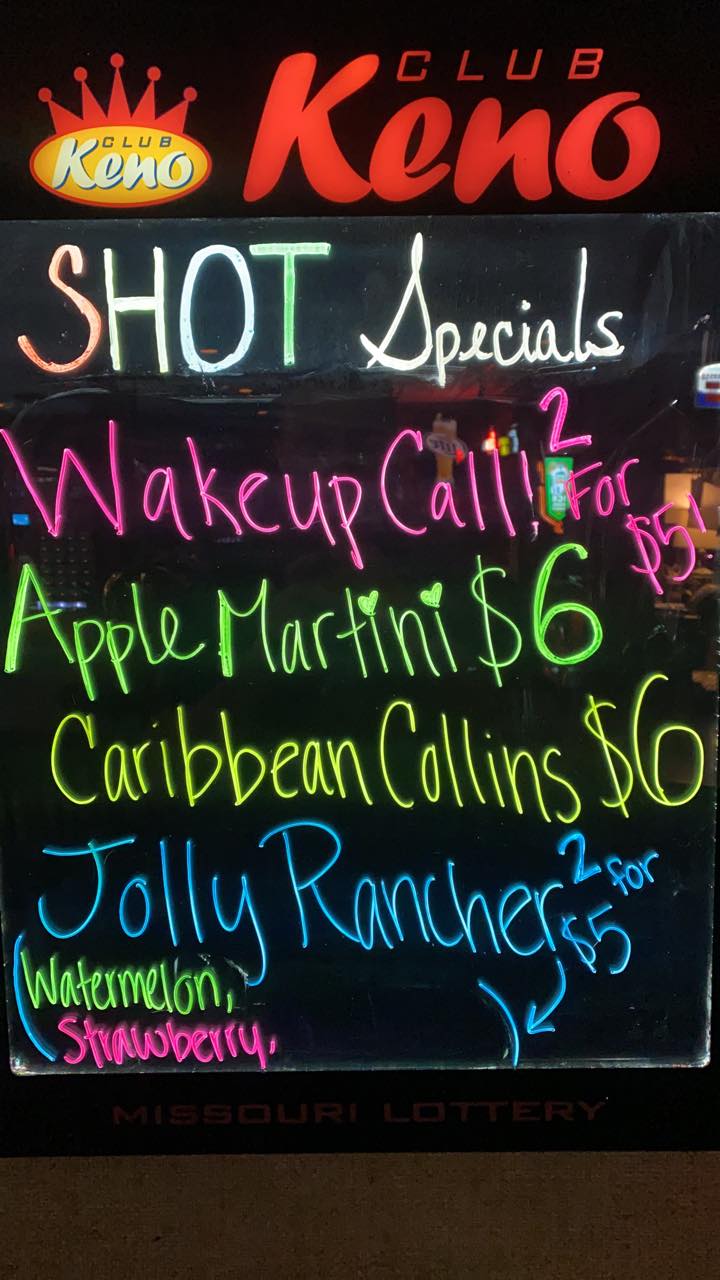 CLUB
Keno
CLUB
Keno
SHOT Specials
Wakeup Call! 2 For $5!
Apple Martini $6
Caribbean Collins $6
Jolly Rancher 2 for $5
(Watermelon,
Strawberry, )
MISSOURI LOTTERY